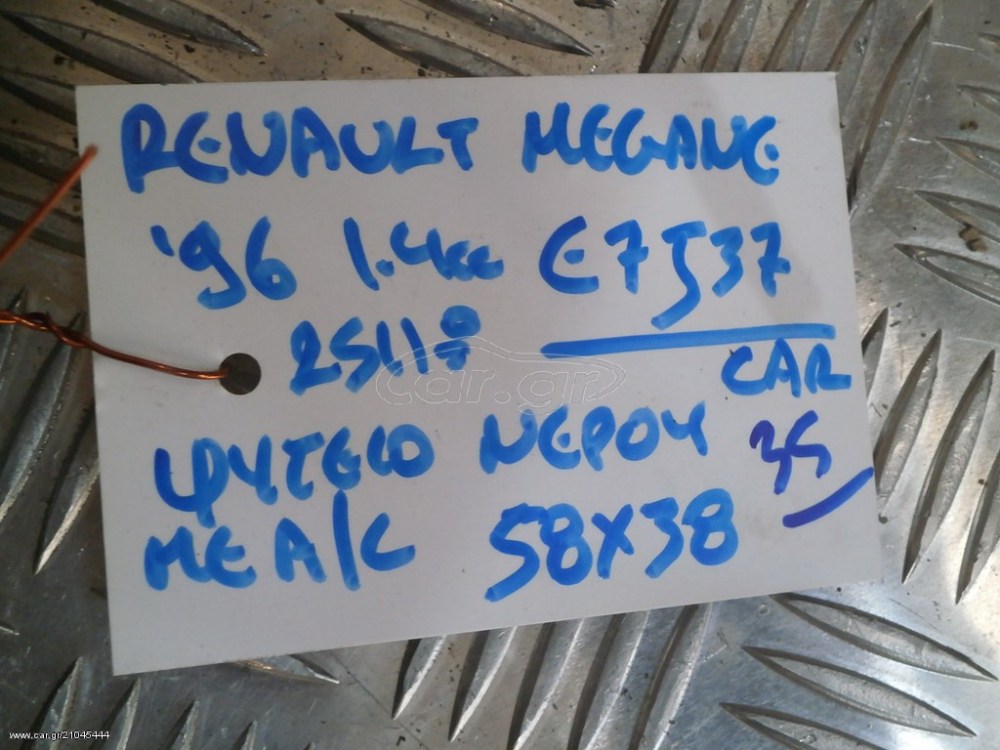 RENAULT MEGANE
'96 1.4cc E7J37
2511
CAR
ΨΥΓΕΙΟ ΝΕΡΟΥ
35
ME A/C 58X38
car.gr
www.car.gr/21045444